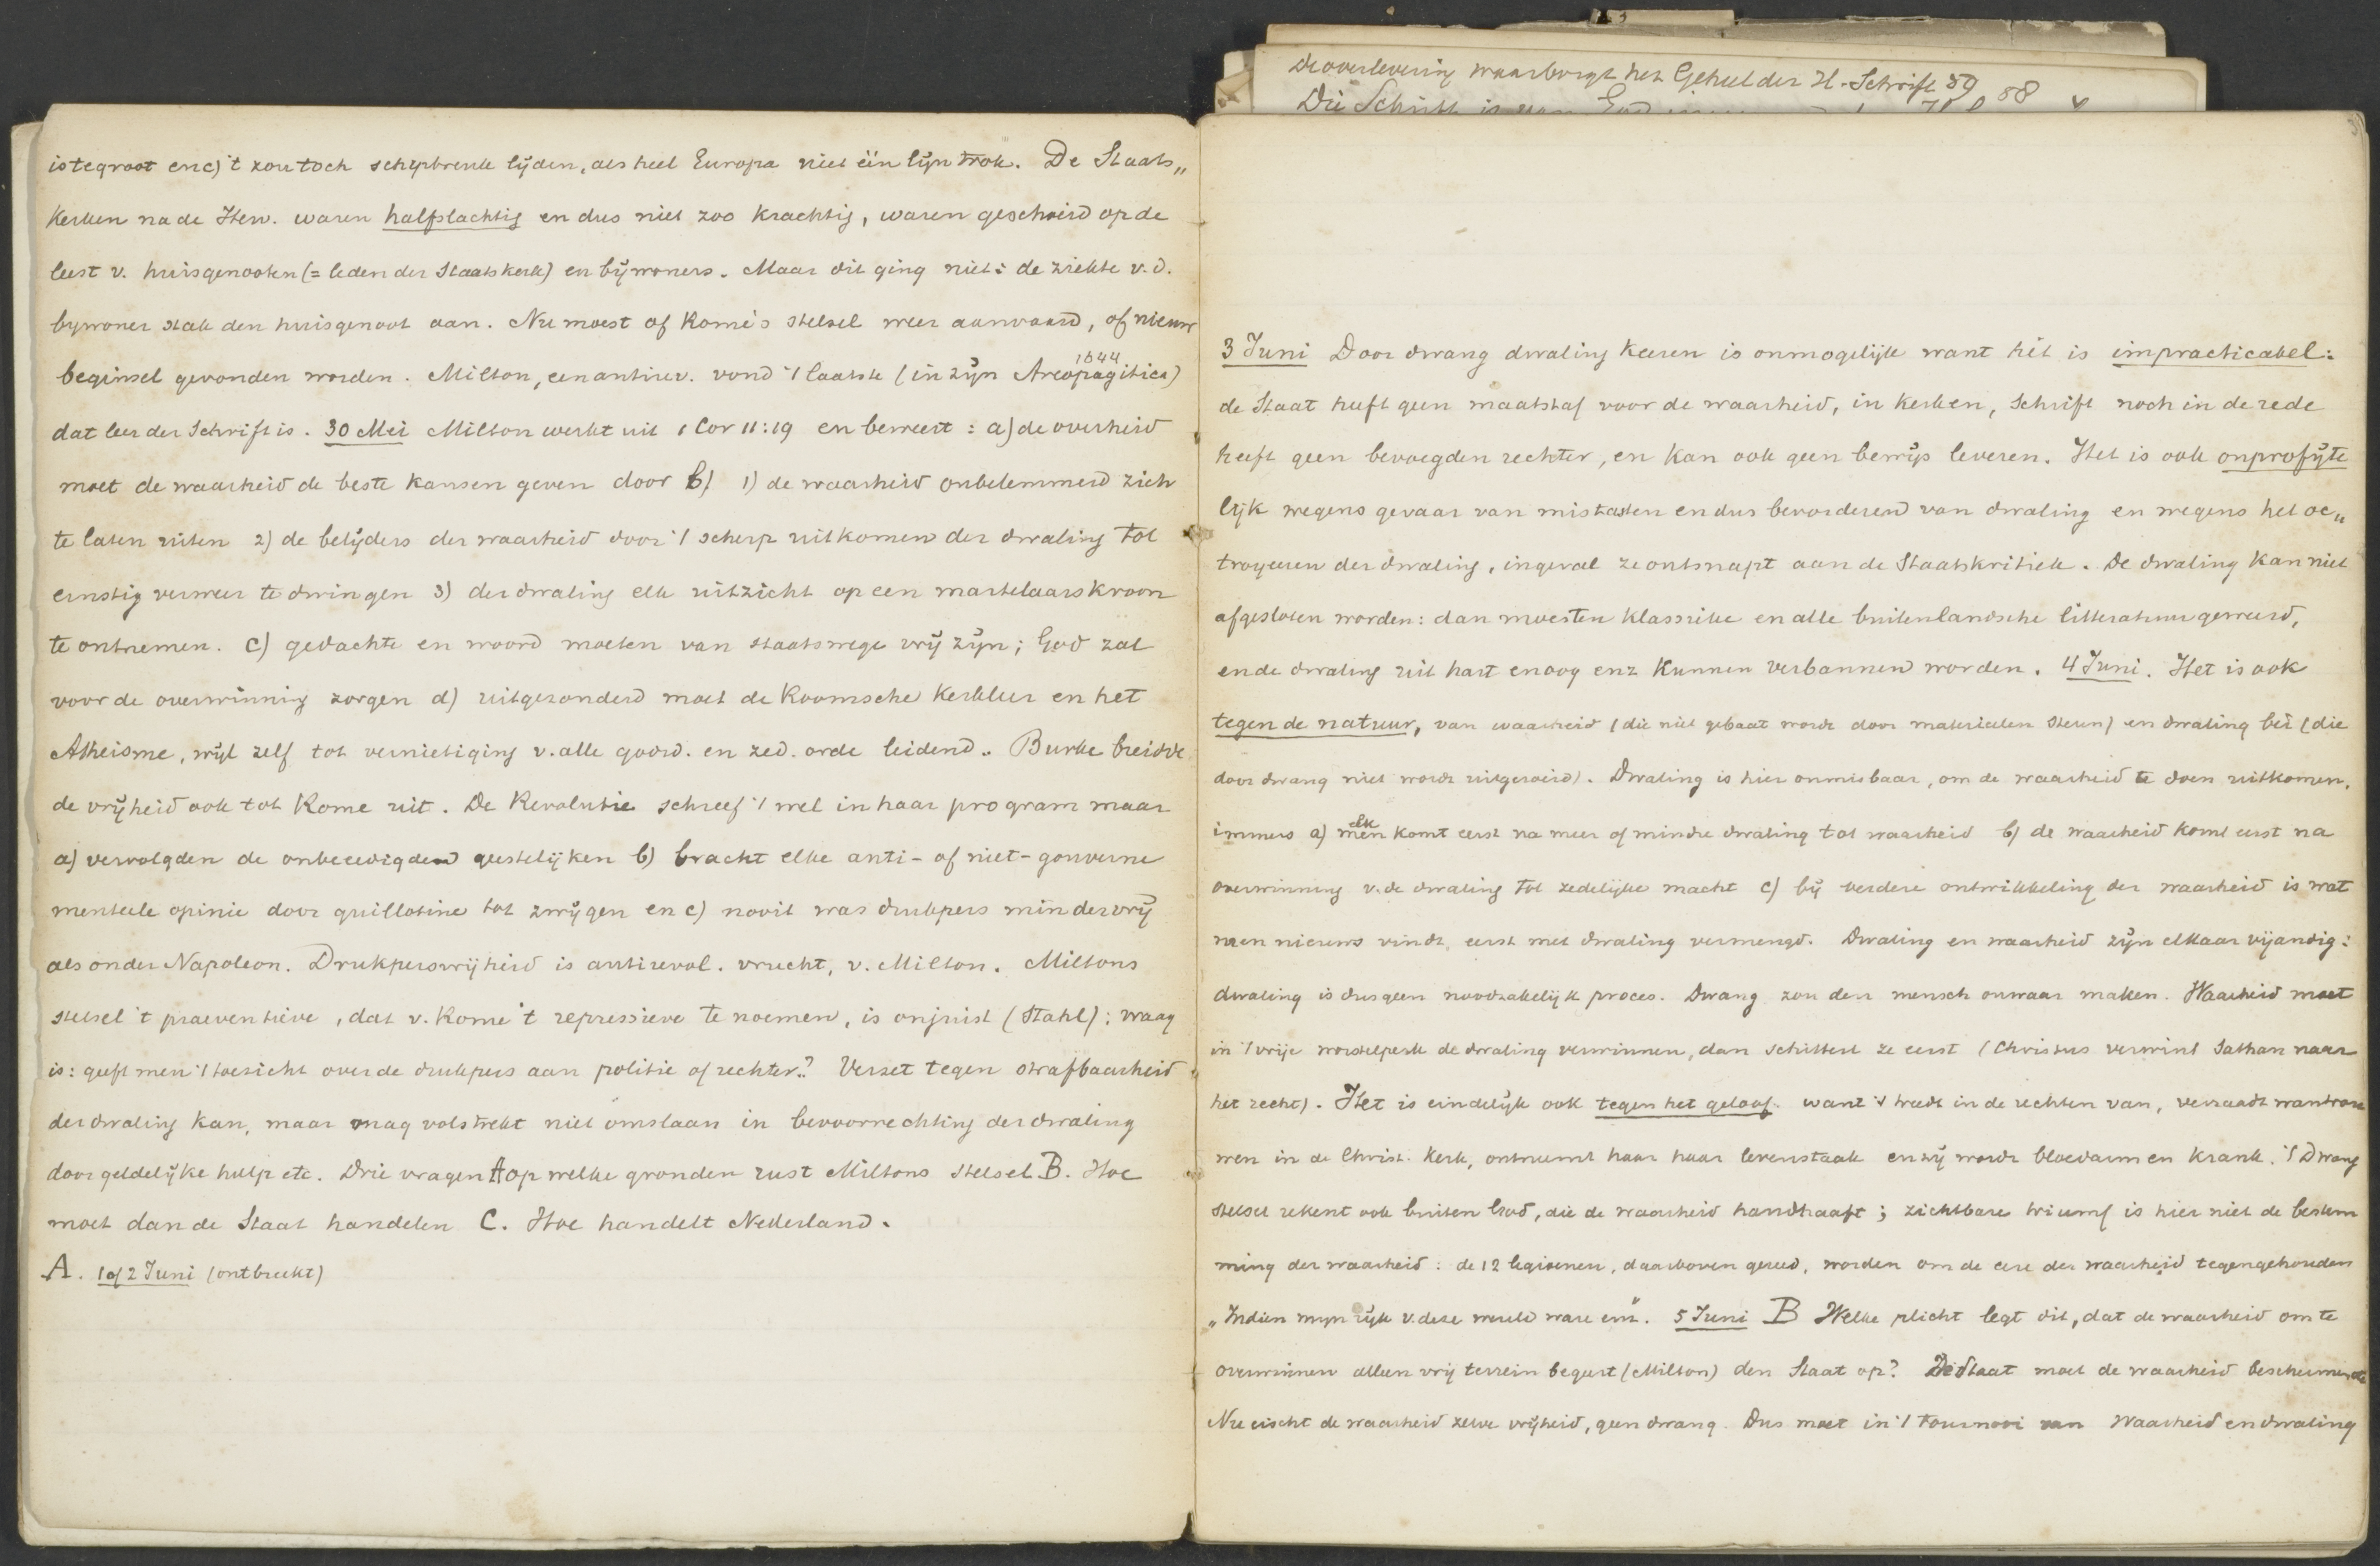 is te groot en c) 't zou toch schipbreuk lijden, als heel Europa niet één lijn trok. De Staats„
kerken na de Herv. waren halfslachtig en dus niet zoo krachtig, waren geschoeid op de
leest v. huisgenooten (= leden der Staatskerk) en bijwoners. Maar dit ging niet: de ziekte v.d.
bijwoner stak den huisgenoot aan. Nu moest of Rome's stelsel weer aanvaard, of nieuw
beginsel gevonden worden. Milton, een antirev. vond 't laatste (in zijn Areopagitica) 1644
dat leer der Schrift is. 30 Mei Milton werkt uit 1 Cor 11:19 en beweert: a) de overheid
moet de waarheid de beste kansen geven door b) 1) de waarheid onbelemmerd zich
te laten uiten 2) de belijders der waarheid door 't scherp uitkomen der dwaling tot
ernstig verweer te dwingen 3) der dwaling elk uitzicht op een martelaarskroon
te ontnemen. c) gedachte en woord moeten van staatswege vrij zijn; God zal
voor de overwinning zorgen d) uitgezonderd moet de Roomsche kerkleer en het
Atheisme, wijl zelf tot vernietiging v. alle godsd. en zed. orde leidend. Burke breidde
de vrijheid ook tot Rome uit. De Revolutie schreef 't wel in haar program maar
a) vervolgden de onbeeedigden geestelijken b) bracht elke anti- of niet-gouverne
menteele opinie door guillotine tot zwijgen en c) nooit was drukpers minder vrij
als onder Napoleon. Drukpersvrijheid is antirevol. vrucht, v. Milton. Miltons
stelsel 't praeventieve, dat v. Rome 't repressieve te noemen, is onjuist (Stahl); vraag
is: geeft men 't toezicht over de drukpers aan politie of rechter? Verzet tegen strafbaarheid
der dwaling kan, maar mag volstrekt niet omslaan in bevoorrechting der dwaling
door geldelijke hulp etc. Drie vragen A op welke gronden rust Miltons stelsel B. Hoe
moet dan de Staat handelen C. Hoe handelt Nederland.
A. 1 of 2 Juni (ontbreekt)
De overlevering waarborgt het Geheel der H. Schrift 59 58
Die Schrift is
3 Juni Door dwang dwaling keeren is onmogelijk want hét is impracticabel:
de Staat heeft geen maatstaf voor de waarheid, in kerken, Schrift noch in de rede
heeft geen bevoegden rechter, en kan ook geen bewijs leveren. Het is ook onprofijte
lijk wegens gevaar van mistasten en dus bevorderend van dwaling en wegens het oc„
troyeeren der dwaling, ingeval ze ontsnapt aan de Staatskritiek. De dwaling kan niet
afgesloten worden: dan moesten klassieke en alle buitenlandsche litteratuur geweerd,
en de dwaling uit hart en oog enz kunnen verbannen worden. 4 Juni. Het is ook
tegen de natuur, van waarheid (die niet gebaat wordt door materieelen steun) en dwaling bei (die
door dwang niet wordt uitgeroeid). Dwaling is hier onmisbaar, om de waarheid te doen uitkomen.
immers a) elk men komt eerst na meer of mindre dwaling tot waarheid b) de waarheid komt eerst na
overwinning v. de dwaling tot zedelijke macht c) bij verdere ontwikkeling der waarheid is wat
men nieuws vindt, eerst met dwaling vermengd. Dwaling en waarheid zijn elkaar vijandig:
dwaling is dus geen noodzakelijk proces. Dwang zou den mensch onwaar maken. Waarheid moet
in 't vrije worstelperk de dwaling verwinnen, dan schittert ze eerst (Christus verwint Sathan naar
het recht). Het is eindelijk ook tegen het geloof. want 't treedt in de rechten van, verraadt wantrou
wen in de Christ. Kerk, ontneemt haar haar levenstaak en zij wordt bloedarm en krank. 't Dwang
stelsel rekent ook buiten God, die de waarheid handhaaft; zichtbare triumf is hier niet de bestem
ming der waarheid: de 12 legioenen, daarboven gereed, worden om de eere der waarheid tegengehouden
„Indien mijn rijk v. deze wereld ware enz". 5 Juni B Welke plicht legt dit, dat de waarheid om te
overwinnen alleen vrij terrein begeert (Milton) den Staat op? De Staat moet de waarheid beschermen
Nu eischt de waarheid zelve vrijheid, geen dwang. Dus moet in 't tournooi van waarheid en dwaling